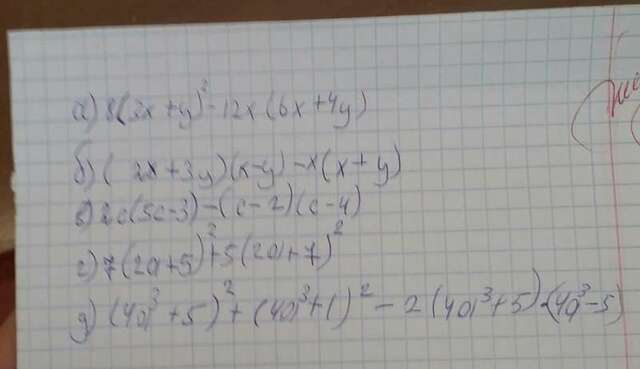 а) 8(3x+y)² - 12x(6x+4y)
б) (2x+3y)(x-y) - x(x+y)
в) 2c(5c-3) - (c-2)(c-4)
г) 7(2a+5)²+5(2a+7)²
д) (4a³+5)² + (4a³+1)² - 2(4a³+5)·(4a³-5)